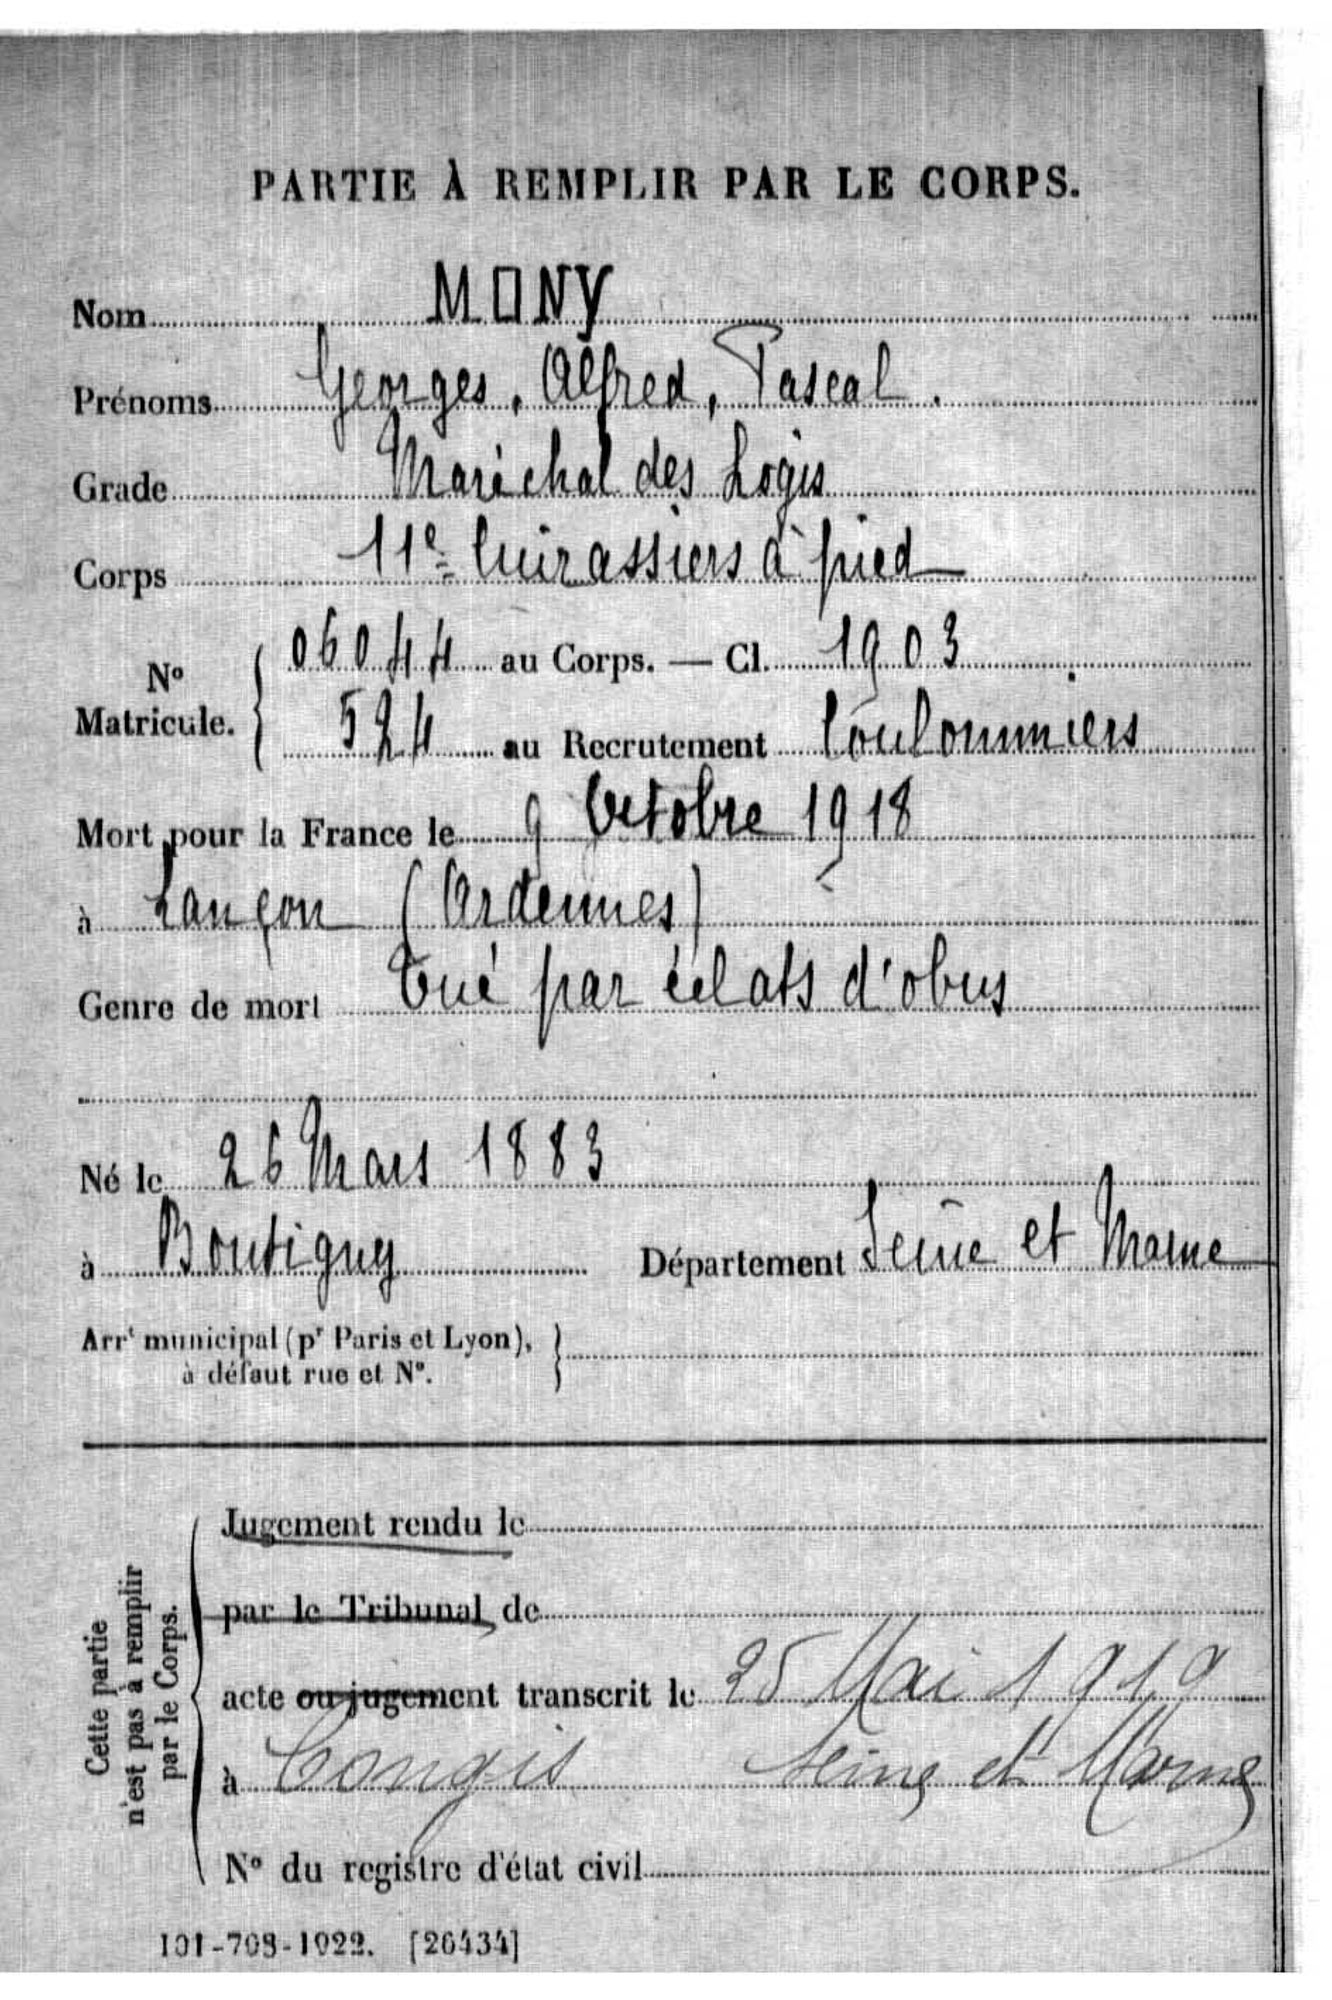 PARTIE À REMPLIR PAR LE CORPS.
Nom MONY
Prénoms Georges, Alfred, Pascal.
Grade Maréchal des Logis
Corps 11e Cuirassiers à pied
No Matricule. 06044 au Corps. — Cl. 1903
524 au Recrutement Coulommiers
Mort pour la France le 9 Octobre 1918
à Lançon (Ardennes)
Genre de mort Tué par éclats d'obus
Né le 26 Mars 1883
à Boutigny Département Seine et Marne
Arrt municipal (pr Paris et Lyon),
à défaut rue et No.
Cette partie
n'est pas à remplir
par le Corps.
Jugement rendu le
par le Tribunal de
acte ou jugement transcrit le 25 Mai 1919
à Congis Seine et Marne
No du registre d'état civil
101-708-1922. [26434]